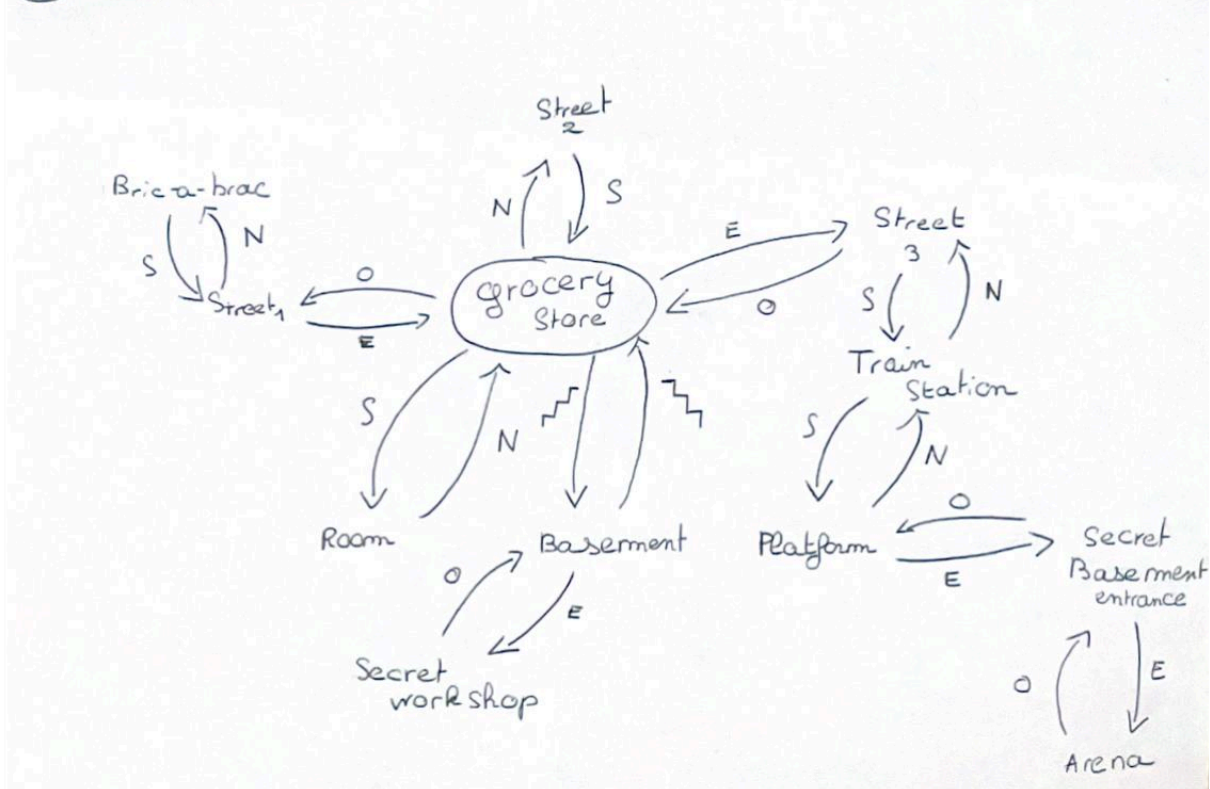 Street
2
Bric-a-brac
N
S
S
N
E
Street
3
O
Street1
E
grocery
Store
O
S
N
Train
Station
S
N
S
N
Room
Basement
Platform
O
E
Secret
Basement
entrance
O
E
Secret
workshop
O
E
Arena